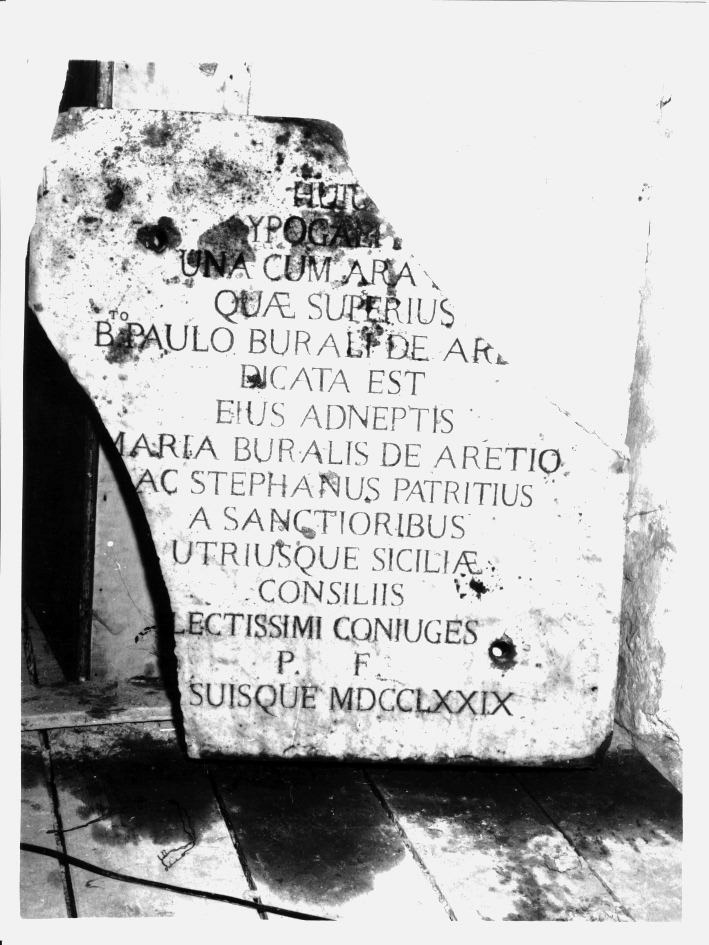 HUIU
YPOGAEI
UNA CUM ARA
QUÆ SUPERIUS
B.TO PAULO BURALI DE ARE
DICATA EST
EIUS ADNEPTIS
MARIA BURALIS DE ARETIO
AC STEPHANUS PATRITIUS
A SANCTIORIBUS
UTRIUSQUE SICILIÆ
CONSILIIS
LECTISSIMI CONIUGES
P. F.
SUISQUE MDCCLXXIX